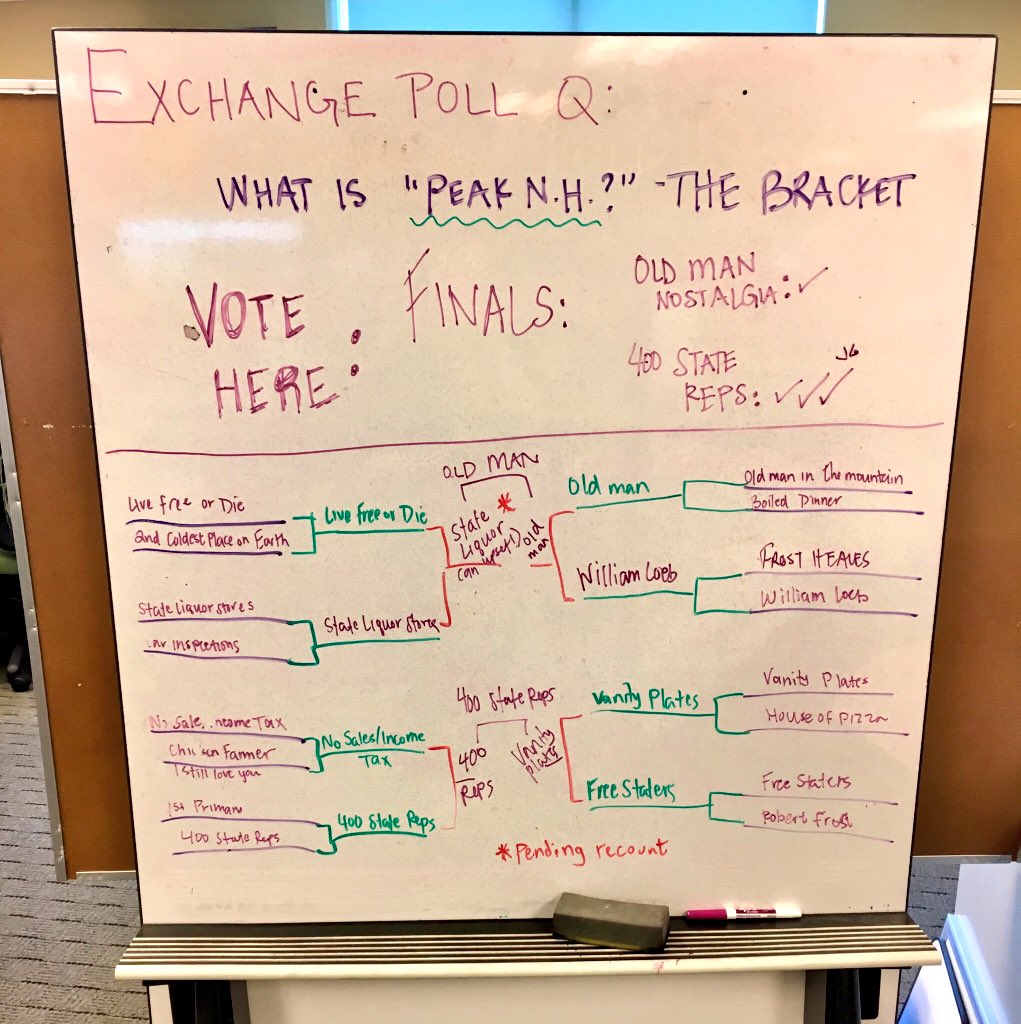 EXCHANGE POLL Q:
WHAT IS "PEAK N.H.?" - THE BRACKET
VOTE HERE:
FINALS:
OLD MAN
NOSTALGIA: ✓
400 STATE
REPS: ✓✓✓
OLD MAN
Live free or Die
2nd Coldest Place on Earth
Live Free or Die
State Liquor stores
inspections
State Liquor Stores
State
Liquor *
upset!)
can
old
man
Old man
Old man in the mountain
Boiled Dinner
William Loeb
FROST HEAVES
William Loeb
No Sale ncome Tax
Farmer
I still love you
No Sales/Income
Tax
1st Primary
400 State Reps
400 State Reps
400 State Reps
400
Reps
Vanity
plates
Vanity Plates
Vanity Plates
House of Pizza
Free Staters
Free Staters
Robert Frost
*Pending recount